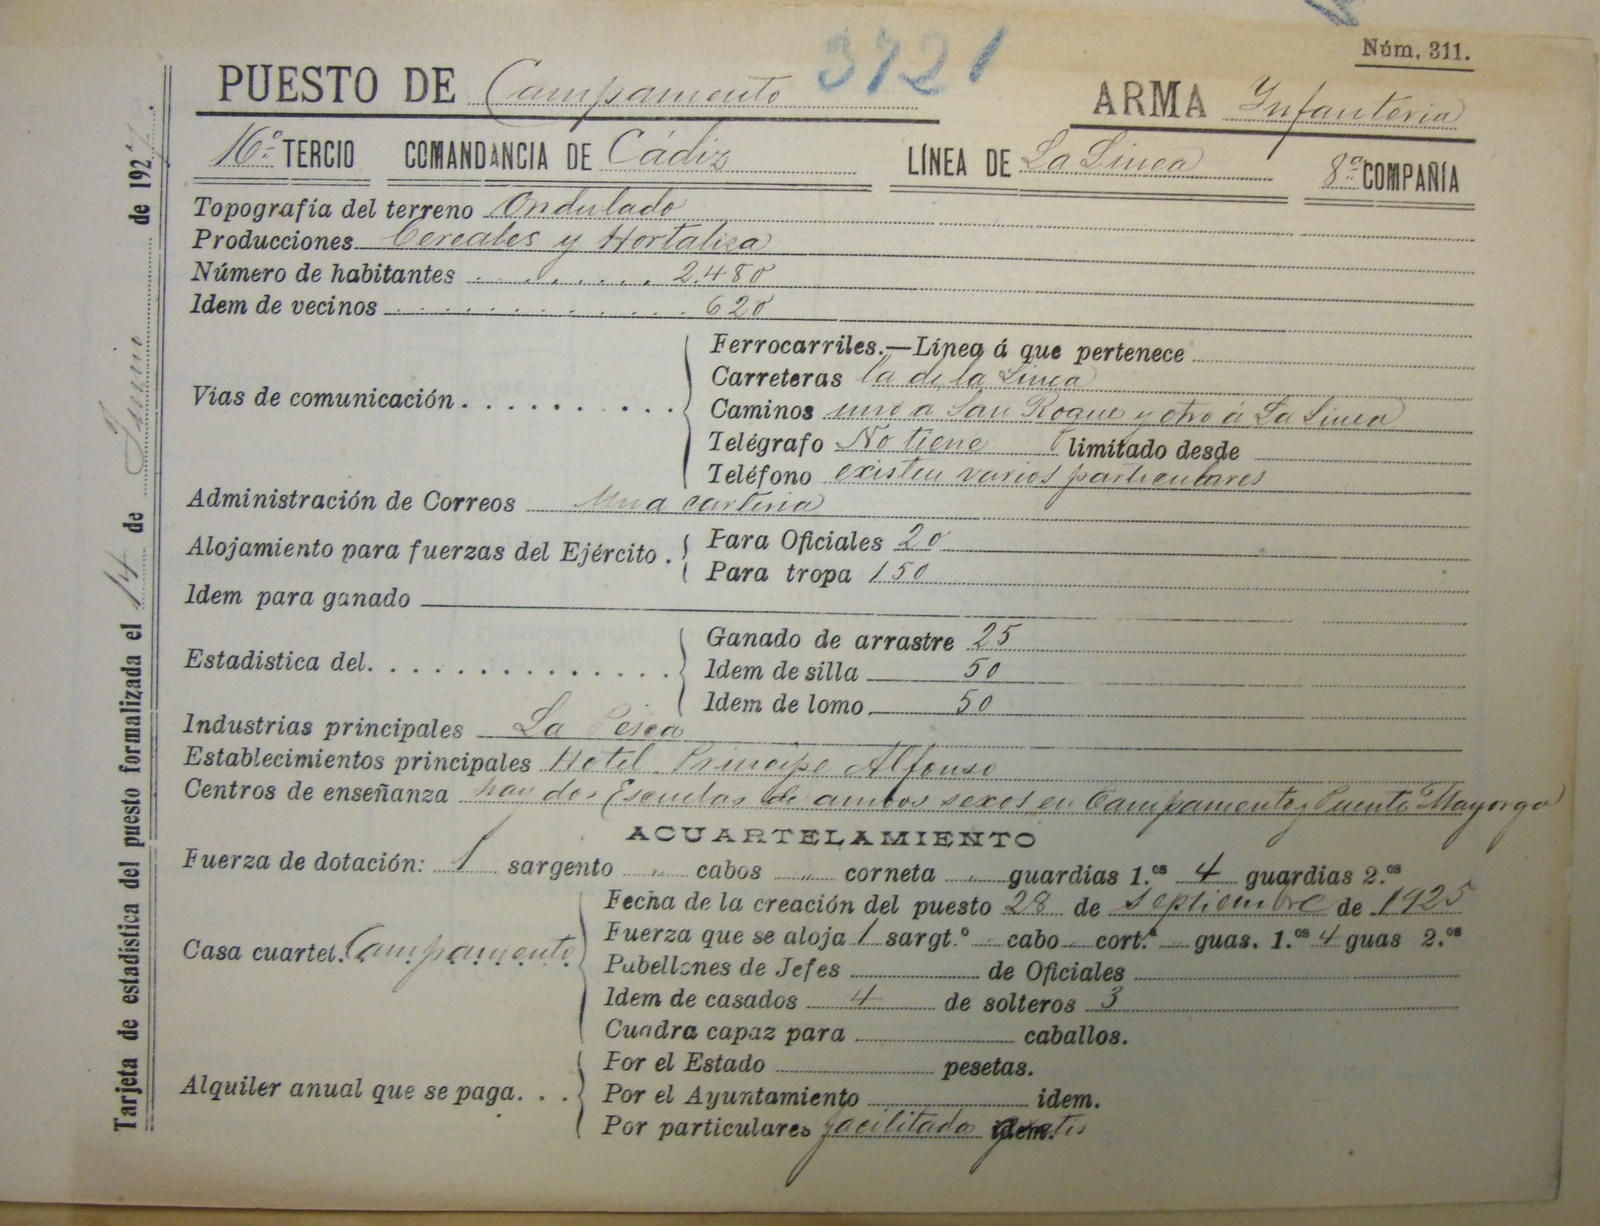 3721
Núm. 311.
PUESTO DE Campamento ARMA Infanteria
16º TERCIO COMANDANCIA DE Cádiz LÍNEA DE La Linea 8ª COMPAÑÍA
Topografía del terreno Ondulado
Producciones Cereales y Hortaliza
Número de habitantes 2.480
Idem de vecinos 620
Vias de comunicación
Ferrocarriles.—Línea á que pertenece
Carreteras la de la Linea
Caminos uno a San Roque y otro á La Linea
Telégrafo No tiene limitado desde
Teléfono existen varios particulares
Administración de Correos Una carteria
Alojamiento para fuerzas del Ejército
Para Oficiales 20
Para tropa 150
Idem para ganado
Estadistica del
Ganado de arrastre 25
Idem de silla 50
Idem de lomo 50
Industrias principales La Pesca
Establecimientos principales Hotel Principe Alfonso
Centros de enseñanza hay dos Escuelas de ambos sexos en Campamento y Puente Mayorga
ACUARTELAMIENTO
Fuerza de dotación: 1 sargento " cabos " corneta " guardias 1.ᵒˢ 4 guardias 2.ᵒˢ
Casa cuartel. Campamento
Fecha de la creación del puesto 28 de Septiembre de 1925
Fuerza que se aloja 1 sargt.º " cabo " cort.ª " guas. 1.ᵒˢ 4 guas 2.ᵒˢ
Pabellones de Jefes de Oficiales
Idem de casados 4 de solteros 3
Cuadra capaz para caballos.
Alquiler anual que se paga
Por el Estado pesetas.
Por el Ayuntamiento idem.
Por particulares facilitada idem. gratis
Tarjeta de estadística del puesto formalizada el 14 de Junio de 192